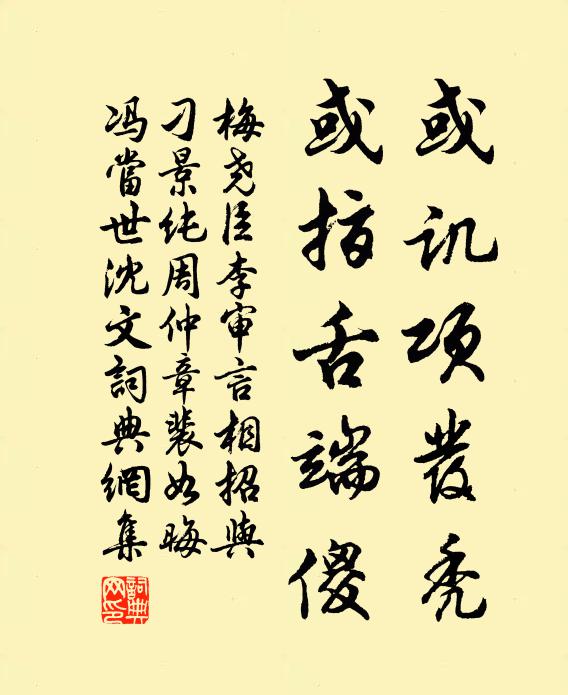 或讥项发秃
或指舌端傻
梅尧臣李审言相招与
刁景纯周仲章裴如晦
冯當世沈文詞典網集
詞典
网印